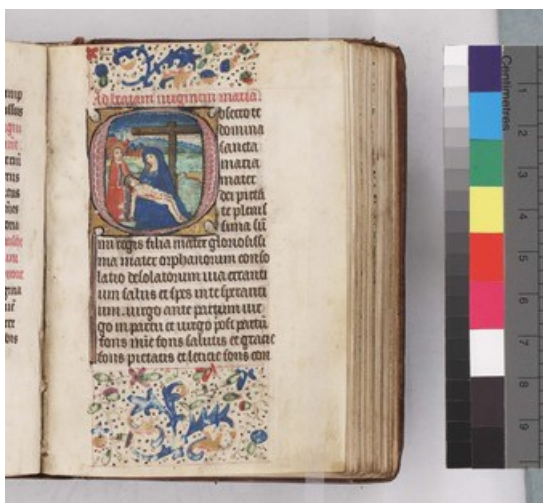 Ad beatam uirginem maria.
Obsecro te
domina
sancta
maria
mater
dei pieta
te pleniſ
sima sū
mi regis filia mater gloriosissi
ma mater orphanorum conso
latio desolatorum uia erranti
um salus et spes in te speranti
um. uirgo ante partum uir
go in partu et uirgo post partū
fons mie fons salutis et gracie
fons pietatis et leticie fons con
Centimetres
1
2
3
4
5
6
7
8
9